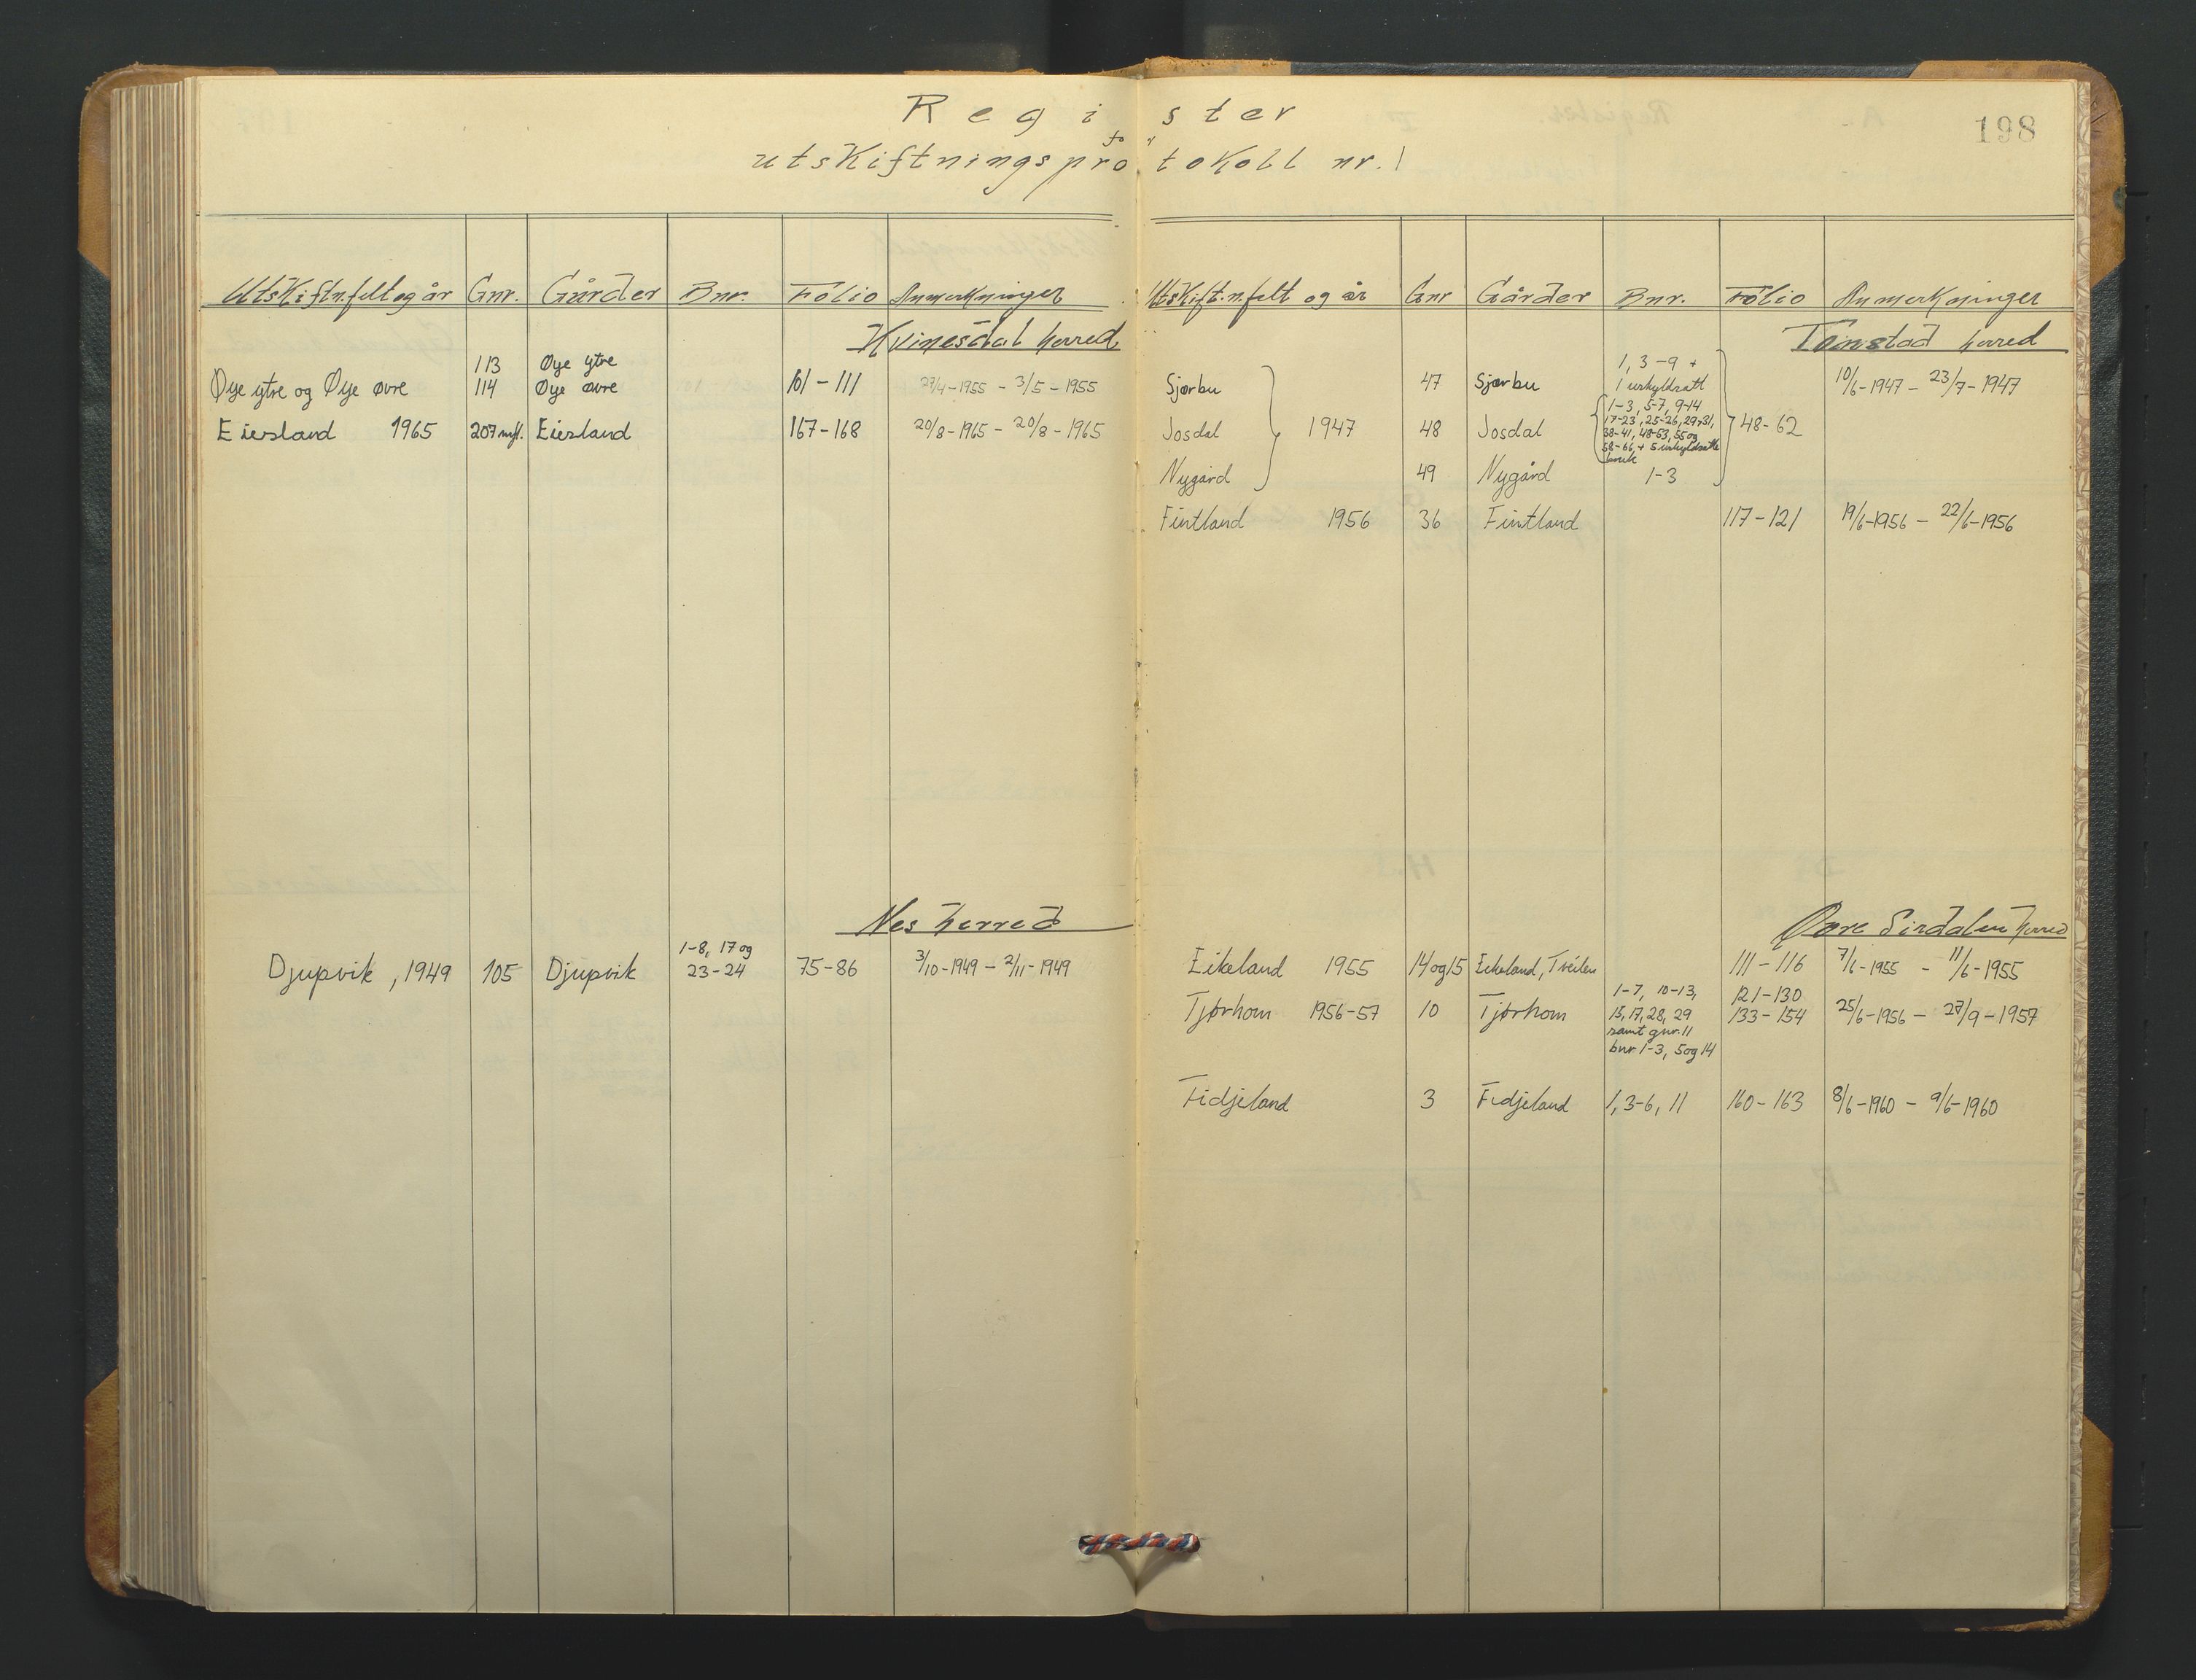 Register
to
utskiftningsprotokoll nr. 1
198
Utskiftn.felt og år Gnr. Gårder Bnr. Folio Anmerkninger
Kvinesdal herred
113 Øye ytre
Øye ytre og Øye øvre 114 Øye øvre 101-111 27/4-1955 - 3/5-1955
Eiesland 1965 207 mfl. Eiesland 167-168 20/8-1965 - 20/8-1965
Nes herred
1-8, 17 og
Djupvik, 1949 105 Djupvik 23-24 75-86 3/10-1949 - 2/11-1949
Utskift.n.felt og år Gnr Gårder Bnr. Folio Anmerkninger
Tonstad herred
1, 3-9 +
Sjørbu 47 Sjørbu 1 uskyldsatt 10/6-1947 - 23/7-1947
1-3, 5-7, 9-14
Josdal 1947 48 Josdal 17-23, 25-26, 29+31, 48-62
38-41, 48-53, 55 og
58-66, + 5 uskyldsatte
bruk
Nygård 49 Nygård 1-3
Fintland 1956 36 Fintland 117-121 19/6-1956 - 22/6-1956
Øvre Sirdalen herred
Eikeland 1955 14 og 15 Eikeland, Tveiten 111-116 7/6-1955 - 11/6-1955
1-7, 10-13, 121-130
Tjørhom 1956-57 10 Tjørhom 15, 17, 28, 29 133-154 25/6-1956 - 27/9-1957
samt gnr. 11
bnr. 1-3, 5 og 14
Fidjeland 3 Fidjeland 1, 3-6, 11 160-163 8/6-1960 - 9/6-1960